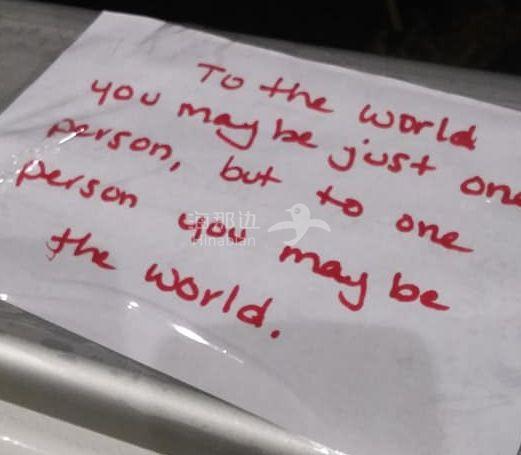 To the world
you may be just one
person, but to one
person you may be
the world.
海那边
Hinabian